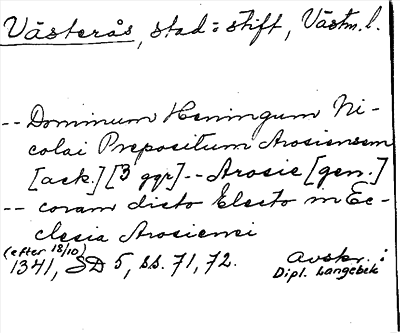 Västerås, stad : stift, Västm. l.
-- Dominum Heningum Ni-
colai Prepositum Arosiensem
[ack.] [3 ggr] -- Arosie [gen.]
-- coram dicto Electo in Ec-
clesia Arosiensi
(efter 18/10)
1341, SD 5, ss. 71, 72. Avskr. :
Dipl. Langebek